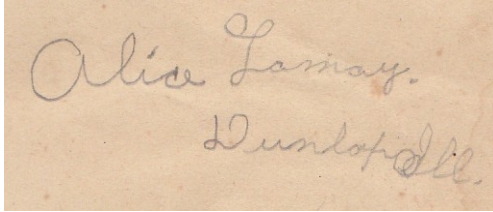 Alice Lamay.
Dunlap Ill.